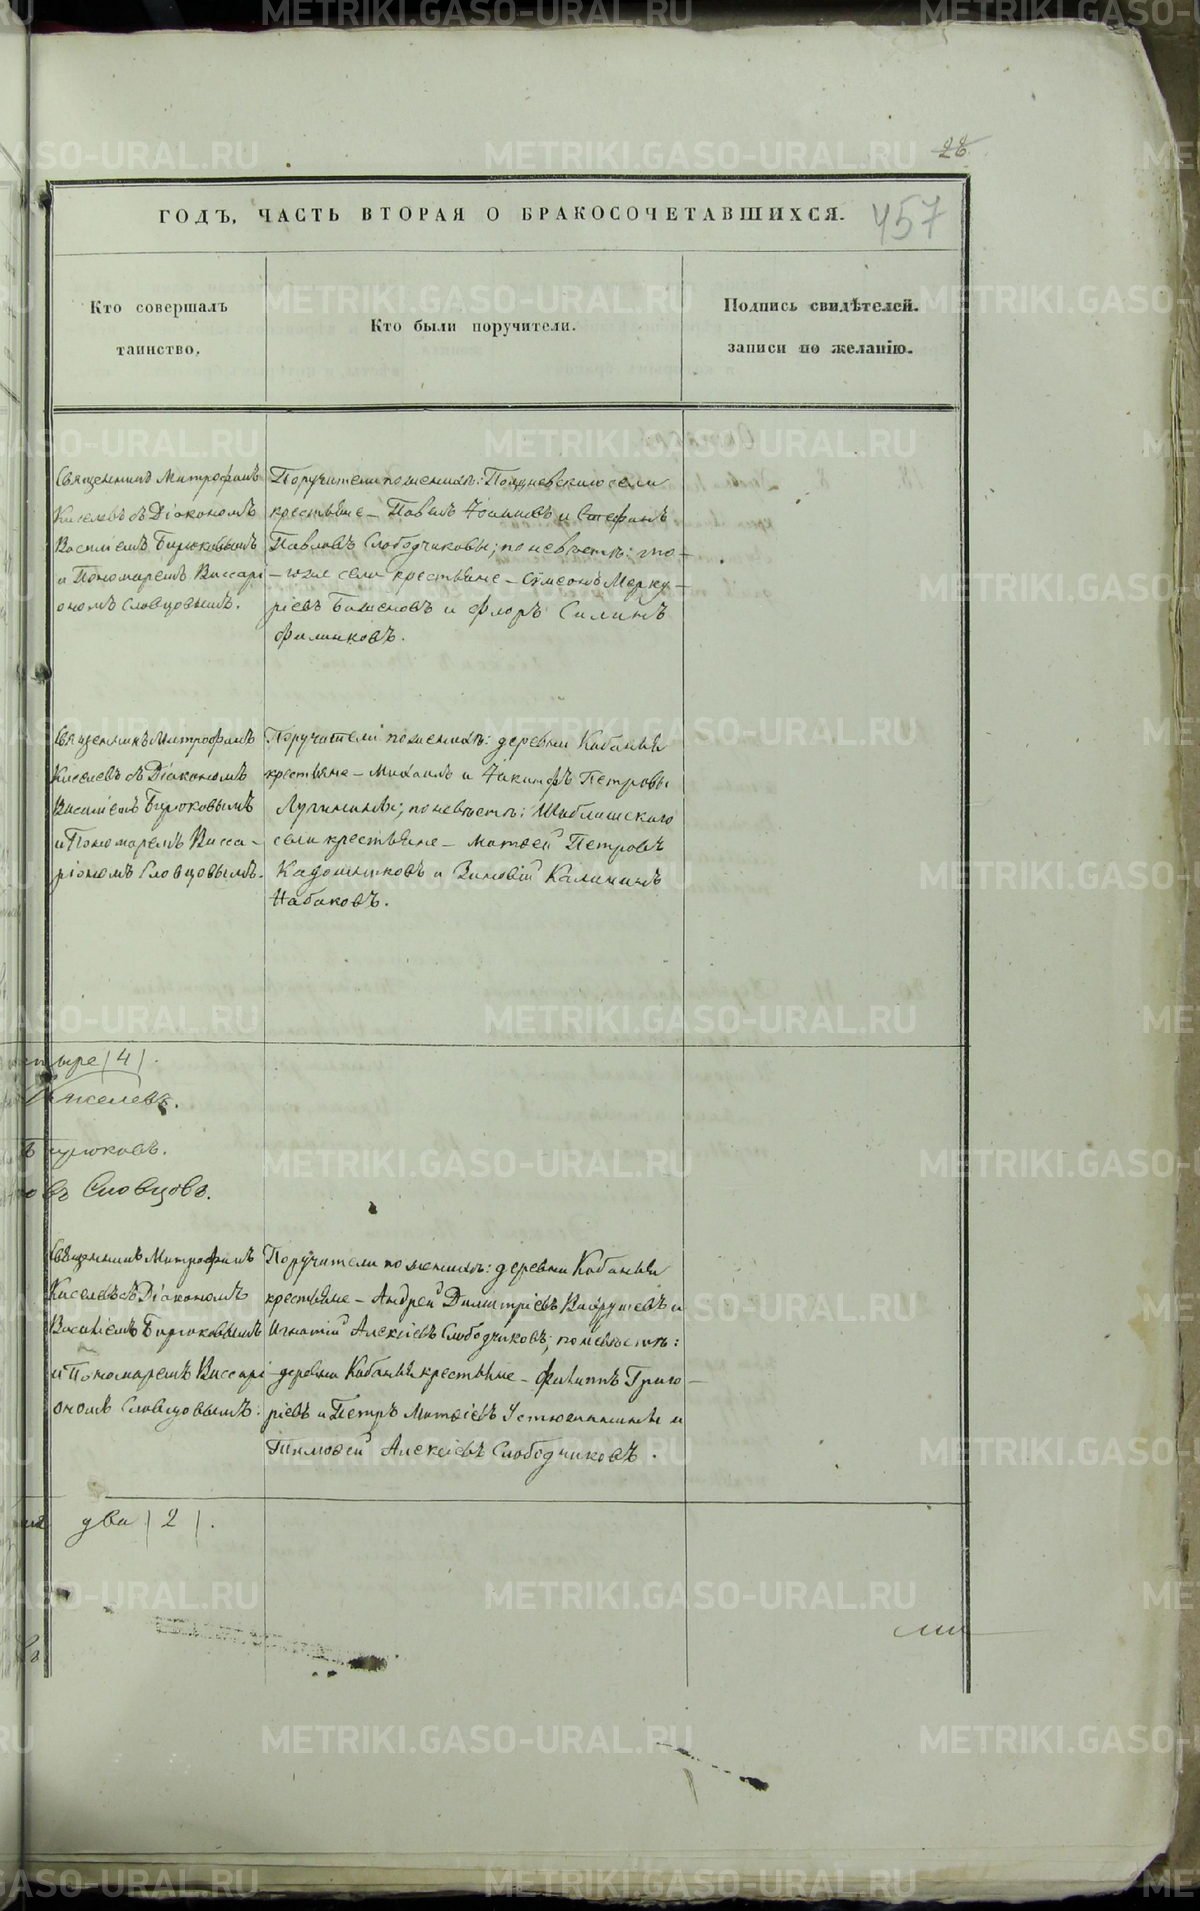 28
ГОДЪ, ЧАСТЬ ВТОРАЯ О БРАКОСОЧЕТАВШИХСЯ.
457
Кто совершалъ
таинство.
Кто были поручители.
Подпись свидѣтелей.
записи по желанію.
Священникъ Митрофанъ
Киселевъ съ Діакономъ
Василіемъ Бирюковымъ
и Пономаремъ Виссарі
ономъ Словцовымъ.
Поручители по женихѣ: села
крестьяне – Павелъ и Стефанъ
Павловъ Слободчиковы; по невѣстѣ: то-
– гоже села крестьяне – Сѵмеонъ Мерку-
ріевъ и Флоръ Силинъ
Филинковъ.
Священникъ Митрофанъ
Киселевъ съ Діакономъ
Василіемъ Бирюковымъ
и Пономаремъ Висса-
ріономъ Словцовымъ.
Поручители по женихѣ: деревни Кабаньей
крестьяне – Михаилъ и Іакинфъ Петровы
по невѣстѣ: Шаблишскаго
села крестьяне – Матѳей Петровъ
Кадошниковъ и Зиновій Калининъ
Набаковъ.
тыре | 4 | .
Киселевъ.
Бирюковъ.
въ Словцовъ.
Священникъ Митрофанъ
Киселевъ съ Діакономъ
Василіемъ Бирюковымъ
и Пономаремъ Виссарі
ономъ Словцовымъ.
Поручители по женихѣ: деревни Кабаньей
крестьяне – Андрей Димитріевъ Вахрушевъ и
Игнатій Алексіевъ Слободчиковъ; по невѣстѣ:
деревни Кабаньей крестьяне – Филиппъ Григо-
ріевъ и Петръ Матѳіевъ Устюжанины и
Тимоѳей Алексіевъ Слободчиковъ.
два | 2 | .
METRIKI.GASO-URAL.RU